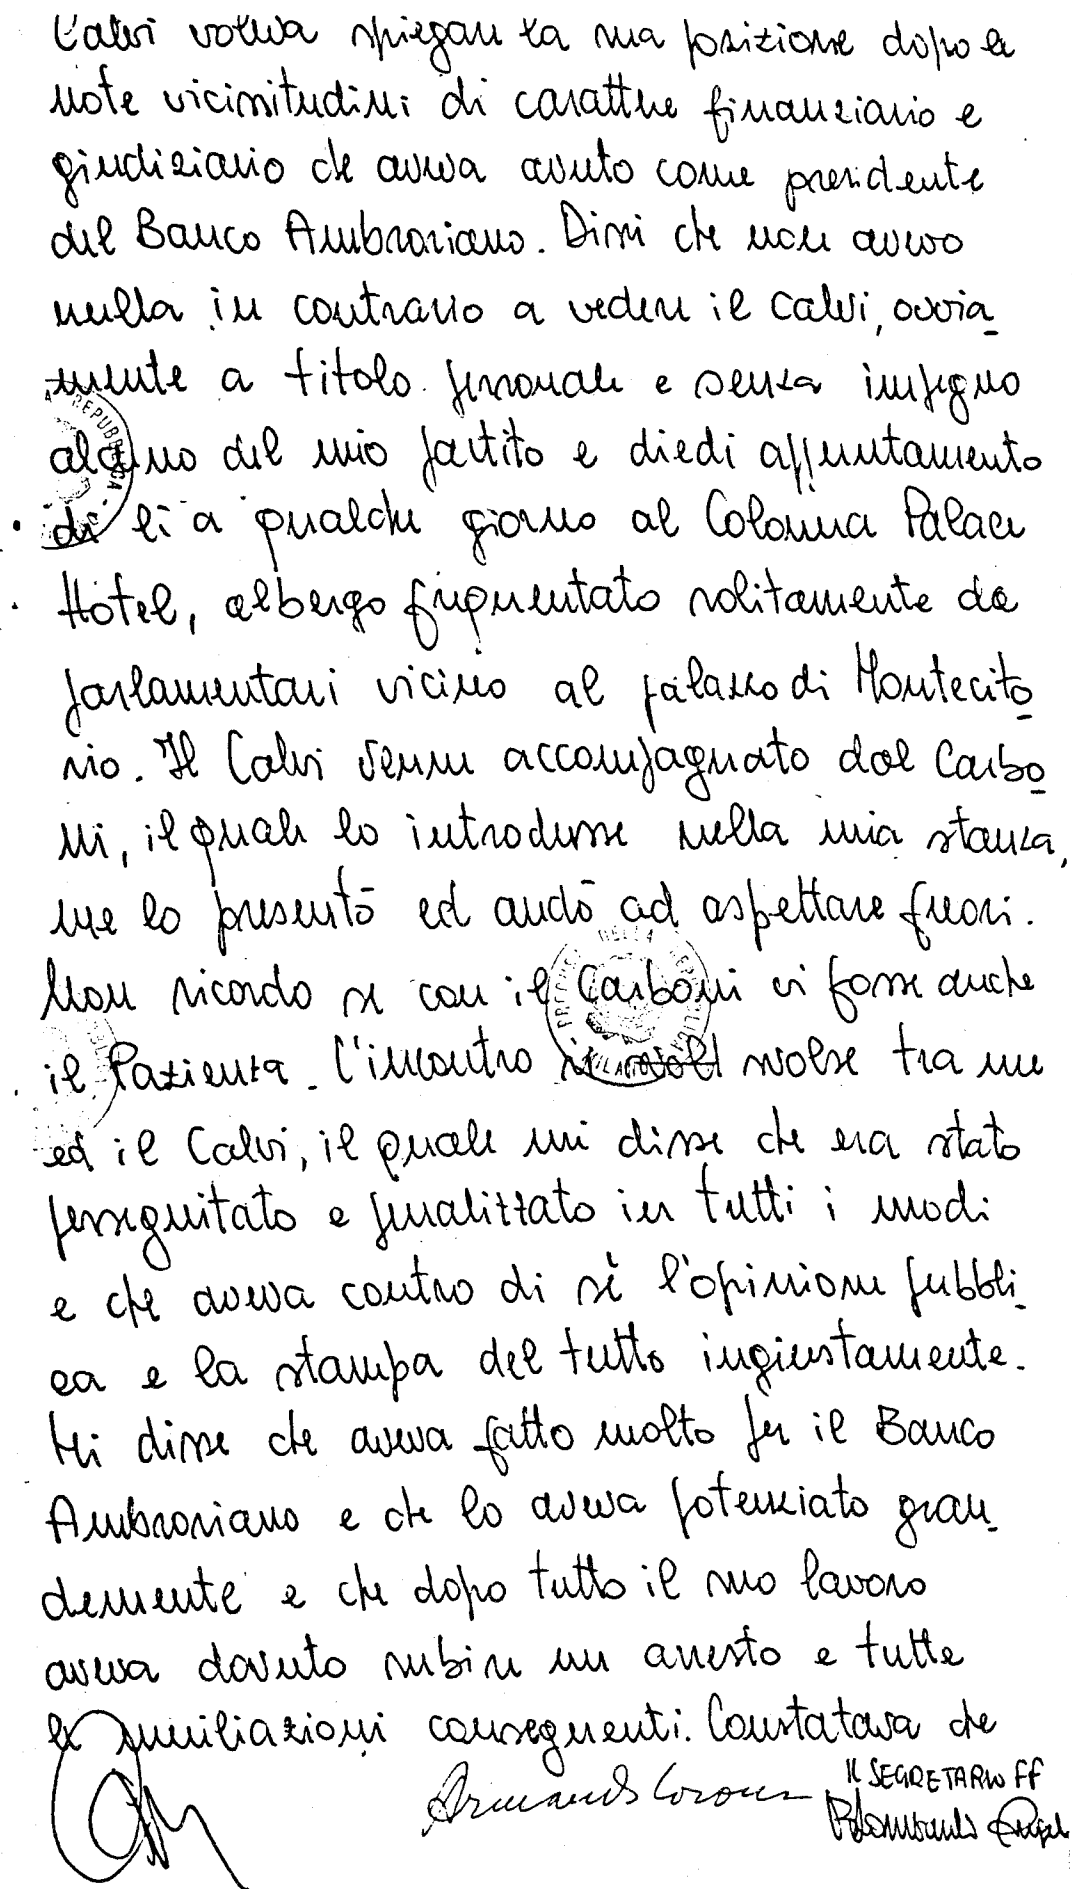 Calvi voleva spiegare la sua posizione dopo le
note vicissitudini di carattere finanziario e
giudiziario che aveva avuto come presidente
del Banco Ambrosiano. Dissi che non avevo
nulla in contrario a vedere il Calvi, ovvia-
mente a titolo personale e senza impegno
alcuno del mio partito e diedi appuntamento
di lì a qualche giorno al Colonna Palace
Hotel, albergo frequentato solitamente da
parlamentari vicino al palazzo di Montecito-
rio. Il Calvi venne accompagnato dal Carbo-
ni, il quale lo introdusse nella mia stanza,
me lo presentò ed andò ad aspettare fuori.
Non ricordo se con il Carboni vi fosse anche
il Pazienza. L'incontro si svolse tra me
ed il Calvi, il quale mi disse che era stato
perseguitato e penalizzato in tutti i modi
e che aveva contro di sé l'opinione pubbli-
ca e la stampa del tutto ingiustamente.
Mi disse che aveva fatto molto per il Banco
Ambrosiano e che lo aveva potenziato gran-
demente e che dopo tutto il suo lavoro
aveva dovuto subire un arresto e tutte
le umiliazioni conseguenti. Constatava che
Armando Corona
IL SEGRETARIO FF